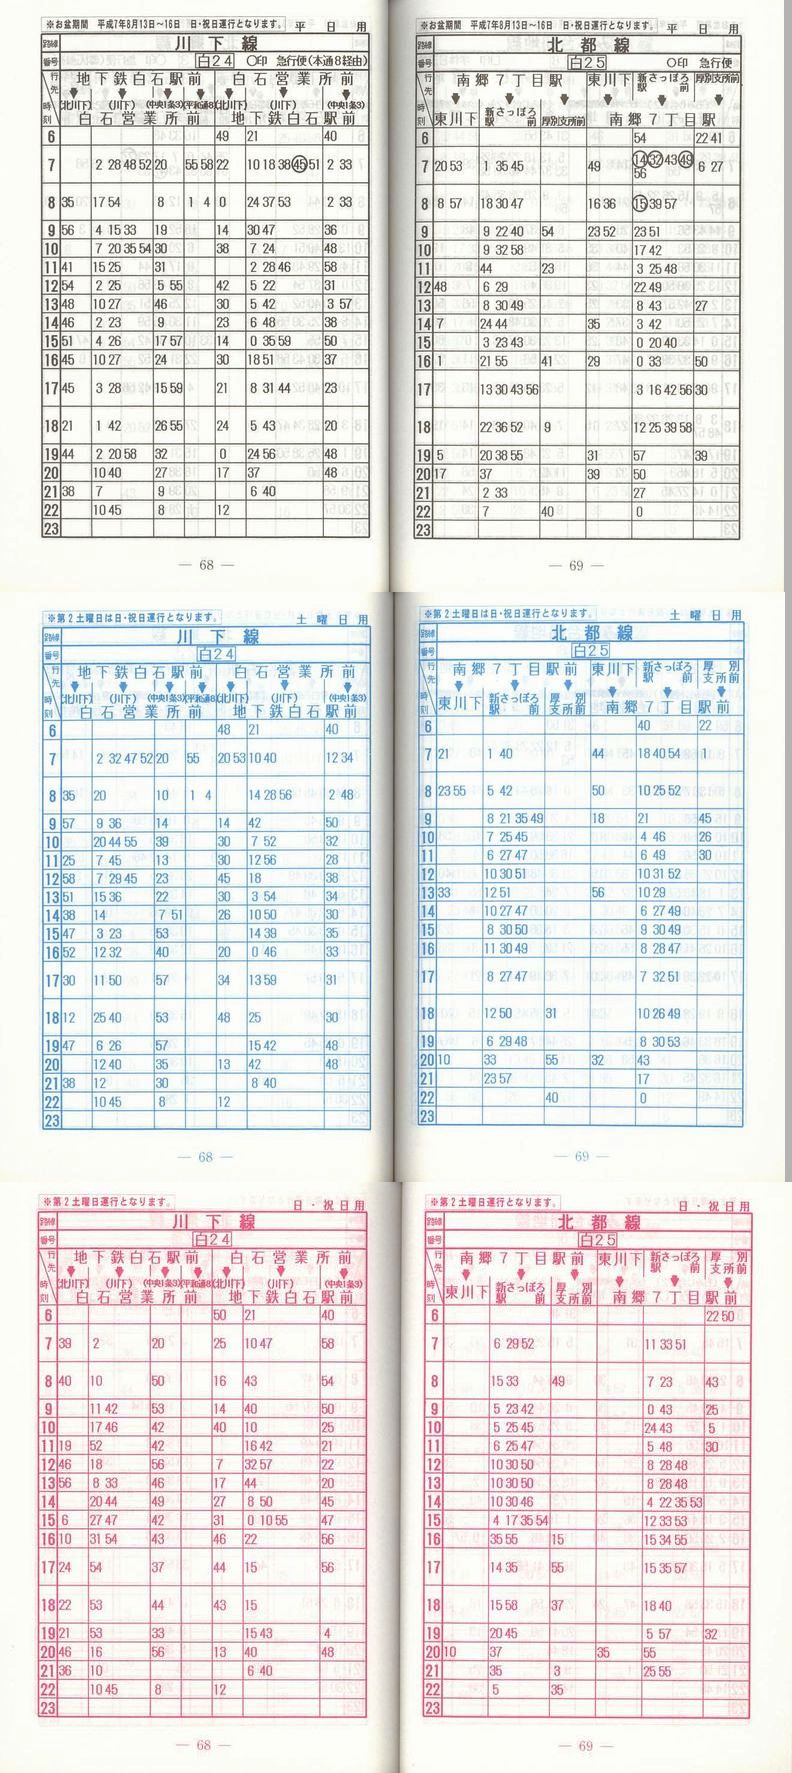 ※お盆期間 平成7年8月13日～16日 日・祝日運行となります。 平日用
路線 川下線
番号 白24 ○印 急行便(本通8経由)
行先 地下鉄白石駅前 白石営業所前
(北川下) (川下) (中央1条3) (平和通8) (北川下) (川下) (中央1条3)
時刻 白石営業所前 地下鉄白石駅前
6 49 21 40
7 2 28 48 52 20 55 58 22 10 18 38 45 51 2 33
8 35 17 54 8 1 4 0 24 37 53 2 33
9 56 4 15 33 19 14 30 47 36
10 7 20 35 54 30 38 7 24 48
11 41 15 25 31 2 28 46 58
12 54 2 25 5 55 42 5 22 31
13 48 10 27 46 30 5 42 3 57
14 46 2 23 9 23 6 48 38
15 51 4 26 17 57 14 0 35 59 50
16 45 10 27 24 30 18 51 37
17 45 3 28 15 59 21 8 31 44 23
18 21 1 42 26 55 24 5 43 20
19 44 2 20 58 32 0 24 56 48
20 10 40 27 17 37 48
21 38 7 9 6 40
22 10 45 8 12
23
― 68 ―
※お盆期間 平成7年8月13日～16日 日・祝日運行となります。 平日用
路線 北都線
番号 白25 ○印 急行便
行先 南郷7丁目駅前 東川下 新さっぽろ駅前 厚別支所前
時刻 東川下 新さっぽろ駅前 厚別支所前 南郷7丁目駅
6 54 22 41
7 20 53 1 35 45 49 14 32 43 49 56 6 27
8 8 57 18 30 47 16 36 15 39 57
9 9 22 40 54 23 52 23 51
10 9 32 58 17 42
11 44 23 3 25 48
12 48 6 29 22 49
13 8 30 49 8 43 27
14 7 24 44 35 3 42
15 3 23 43 0 20 40
16 1 21 55 41 29 0 33 50
17 13 30 43 56 3 16 42 56 30
18 22 36 52 9 12 25 39 58
19 5 20 38 55 31 57 39
20 17 37 39 50
21 2 33 27
22 7 40 0
23
― 69 ―
※第2土曜日は日・祝日運行となります。 土曜日用
路線 川下線
番号 白24
行先 地下鉄白石駅前 白石営業所前
(北川下) (川下) (中央1条3) (平和通8) (北川下) (川下) (中央1条3)
時刻 白石営業所前 地下鉄白石駅前
6 48 21 40
7 2 32 47 52 20 55 20 53 10 40 12 34
8 35 20 10 1 4 14 28 56 2 48
9 57 9 36 14 14 42 50
10 20 44 55 39 30 7 52 32
11 25 7 45 13 30 12 56 28
12 58 7 29 45 23 45 18 38
13 51 15 36 22 30 3 54 34
14 38 14 7 51 26 10 50 30
15 47 3 23 53 14 39 35
16 52 12 32 40 20 0 46 33
17 30 11 50 57 34 13 59 31
18 12 25 40 53 48 25 30
19 47 6 26 57 15 42 48
20 12 40 35 13 42 48
21 38 12 30 8 40
22 10 45 8 12
23
― 68 ―
※第2土曜日は日・祝日運行となります。 土曜日用
路線 北都線
番号 白25
行先 南郷7丁目駅前 東川下 新さっぽろ駅前 厚別支所前
時刻 東川下 新さっぽろ駅前 厚別支所前 南郷7丁目駅前
6 40 22
7 21 1 40 44 18 40 54 1
8 23 55 5 42 50 10 25 52
9 8 21 35 49 18 21 45
10 7 25 45 4 46 26
11 6 27 47 6 49 30
12 10 30 51 10 31 52
13 33 12 51 56 10 29
14 10 27 47 6 27 49
15 8 30 50 9 30 49
16 11 30 49 8 28 47
17 8 27 47 7 32 51
18 12 50 31 10 26 49
19 6 29 48 8 30 53
20 10 33 55 32 43
21 23 57 17
22 40 0
23
― 69 ―
※第2土曜日運行となります。 日・祝日用
路線 川下線
番号 白24
行先 地下鉄白石駅前 白石営業所前
(北川下) (川下) (中央1条3) (平和通8) (北川下) (川下) (中央1条3)
時刻 白石営業所前 地下鉄白石駅前
6 50 21 40
7 39 2 20 25 10 47 58
8 40 10 50 16 43 54
9 11 42 53 14 40 50
10 17 46 42 40 10 25
11 19 52 42 16 42 21
12 46 18 56 7 32 57 22
13 56 8 33 46 17 44 20
14 20 44 49 27 8 50 45
15 6 27 47 42 31 0 10 55 47
16 10 31 54 43 46 22 56
17 24 54 37 44 15 56
18 22 53 44 43 15
19 21 53 33 15 43 4
20 46 16 56 13 40 48
21 36 10 6 40
22 10 45 8 12
23
― 68 ―
※第2土曜日運行となります。 日・祝日用
路線 北都線
番号 白25
行先 南郷7丁目駅前 東川下 新さっぽろ駅前 厚別支所前
時刻 東川下 新さっぽろ駅前 厚別支所前 南郷7丁目駅前
6 22 50
7 6 29 52 11 33 51
8 15 33 49 7 23 43
9 5 23 42 0 43 25
10 5 25 45 24 43 5
11 6 25 47 5 48 30
12 10 30 50 8 28 48
13 10 30 50 8 28 48
14 10 30 46 4 22 35 53
15 4 17 35 54 12 33 53
16 35 55 15 15 34 55
17 14 35 55 15 35 57
18 15 58 37 18 40
19 20 45 5 57 32
20 10 37 35 55
21 35 3 25 55
22 5 35
23
― 69 ―